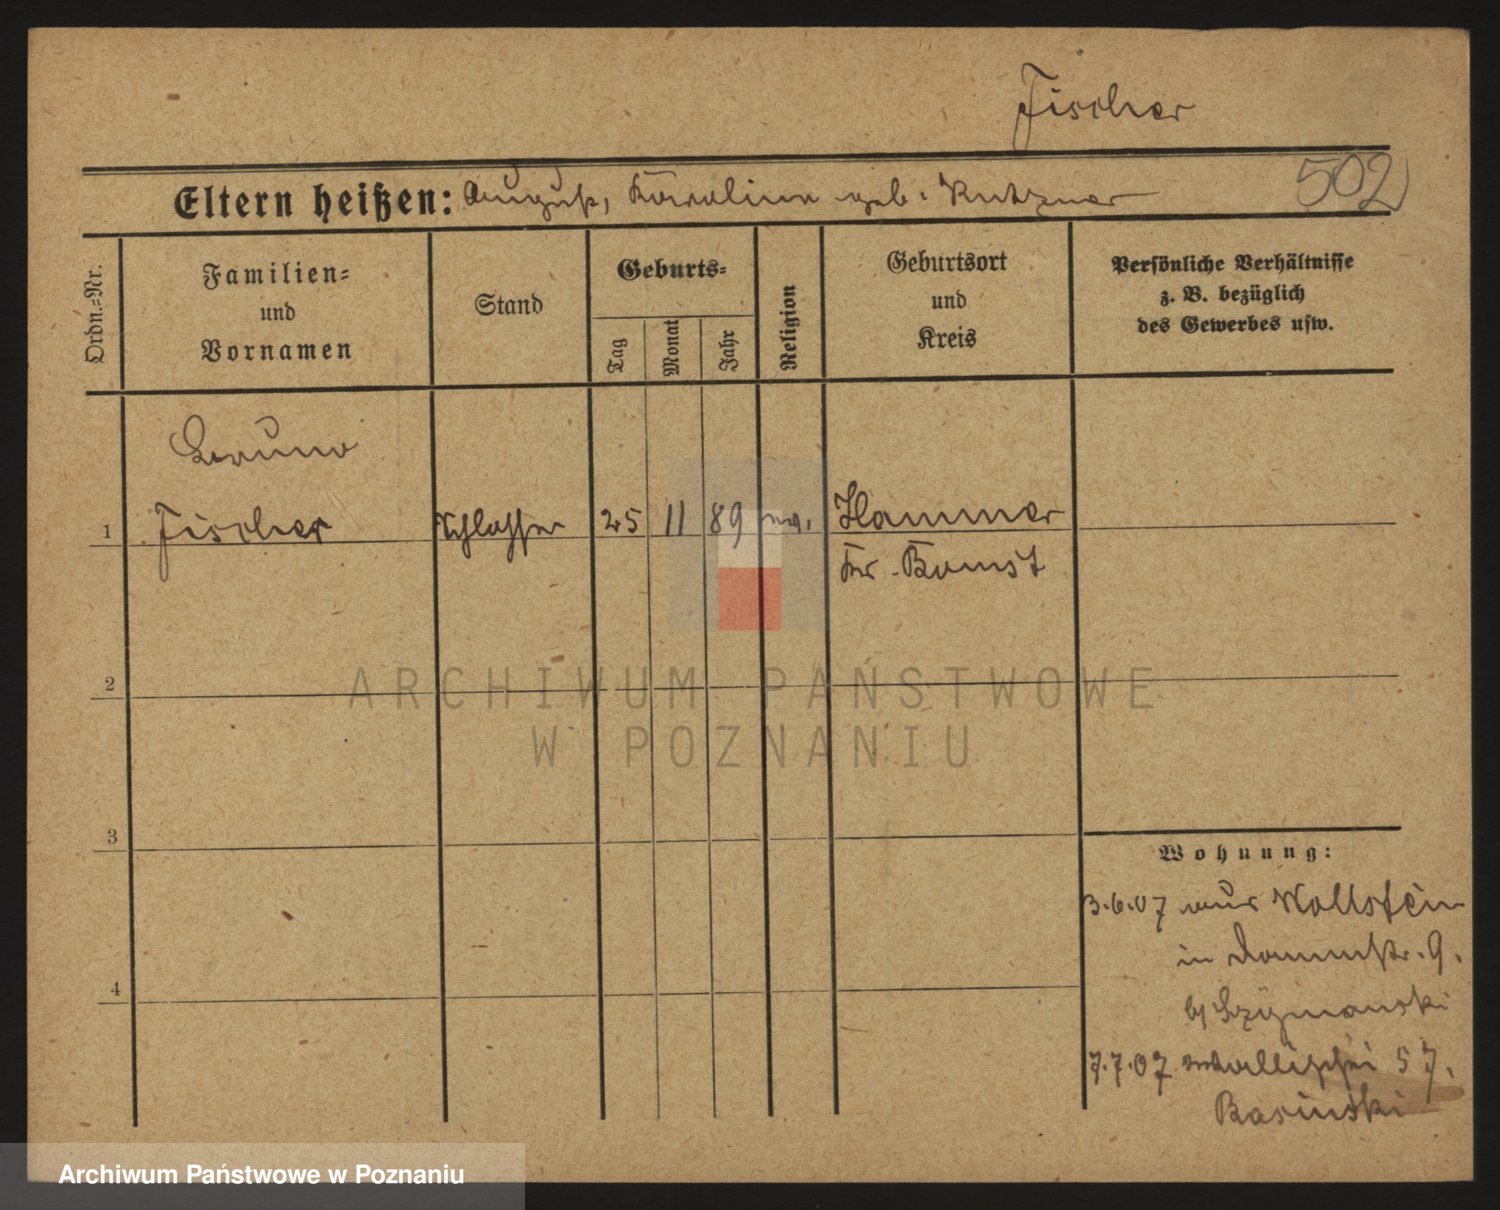 Fischer
502
Eltern heißen: August, Karoline geb. Kutzner
Ordn.-Nr.
Familien-
und
Vornamen
Stand
Geburts-
Tag
Monat
Jahr
Religion
Geburtsort
und
Kreis
Persönliche Verhältnisse
z. B. bezüglich
des Gewerbes usw.
Bruno
1 Fischer Schlosser 25 11 89 ev. Hammer
Kr. Bomst
2
ARCHIWUM PAŃSTWOWE
W POZNANIU
3
Wohnung:
3.6.07 aus Wollstein
in Dammstr. 9.
b/ Szymanski
4
7.7.07 Wallischei 57.
Basinski
Archiwum Państwowe w Poznaniu